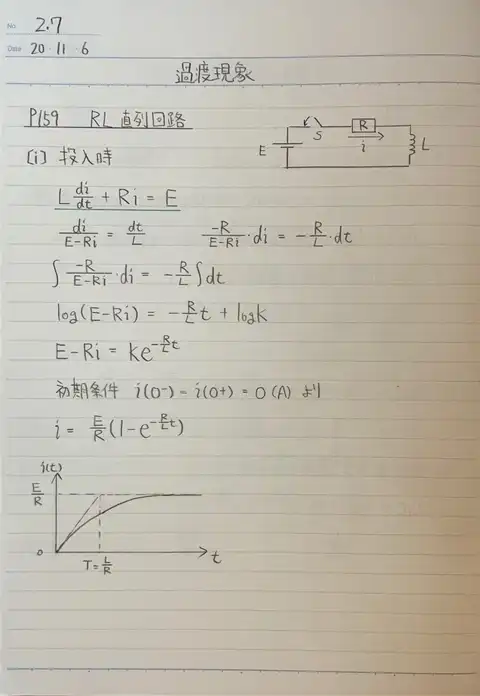 No. 2.7
Date 20・11・6
過渡現象
P159 RL直列回路
S R i E L
〔i〕投入時
L di/dt + Ri = E
di/(E-Ri) = dt/L  -R/(E-Ri)・di = -R/L・dt
∫ -R/(E-Ri)・di = -R/L ∫dt
log(E-Ri) = -R/L t + logk
E-Ri = ke^(-R/L t)
初期条件 i(0-) = i(0+) = 0 (A) より
i = E/R (1-e^(-R/L t))
i(t)
E/R
0
T=L/R
t